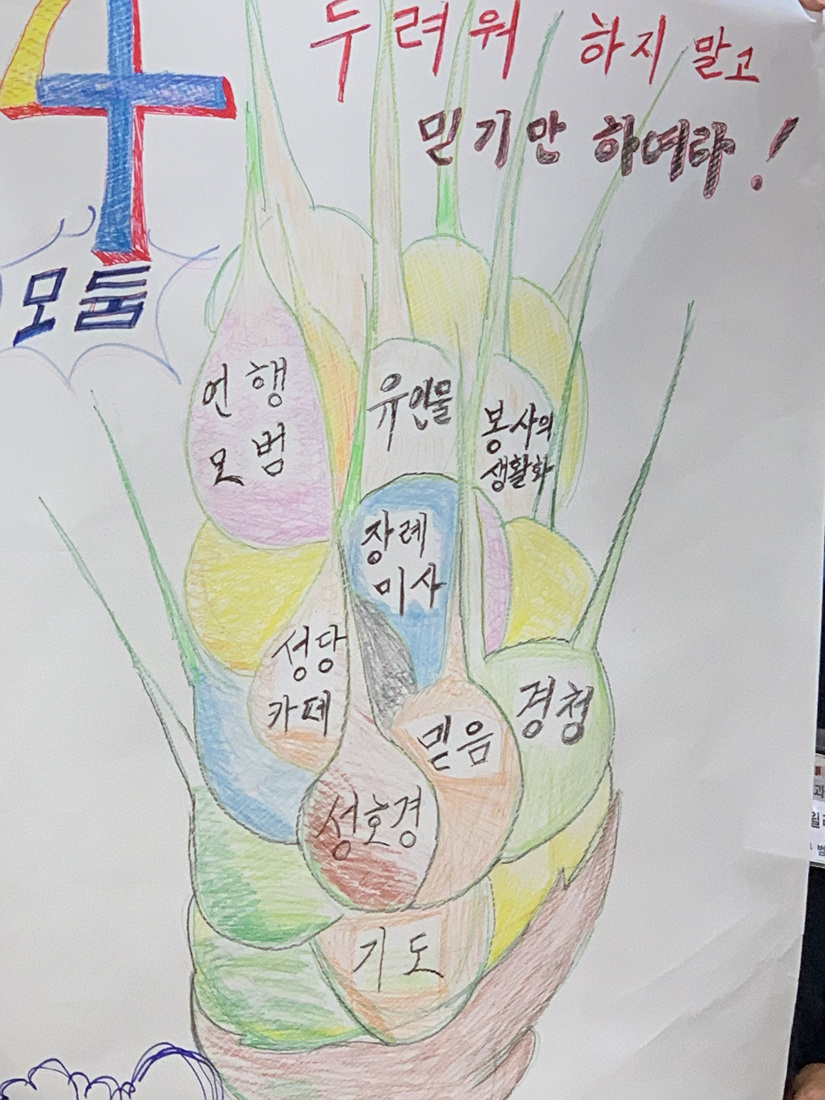 4
모둠
두려워 하지 말고
믿기만 하여라!
언행
모범
유인물
봉사의
생활화
장례
미사
성당
카페
경청
믿음
성호경
기도